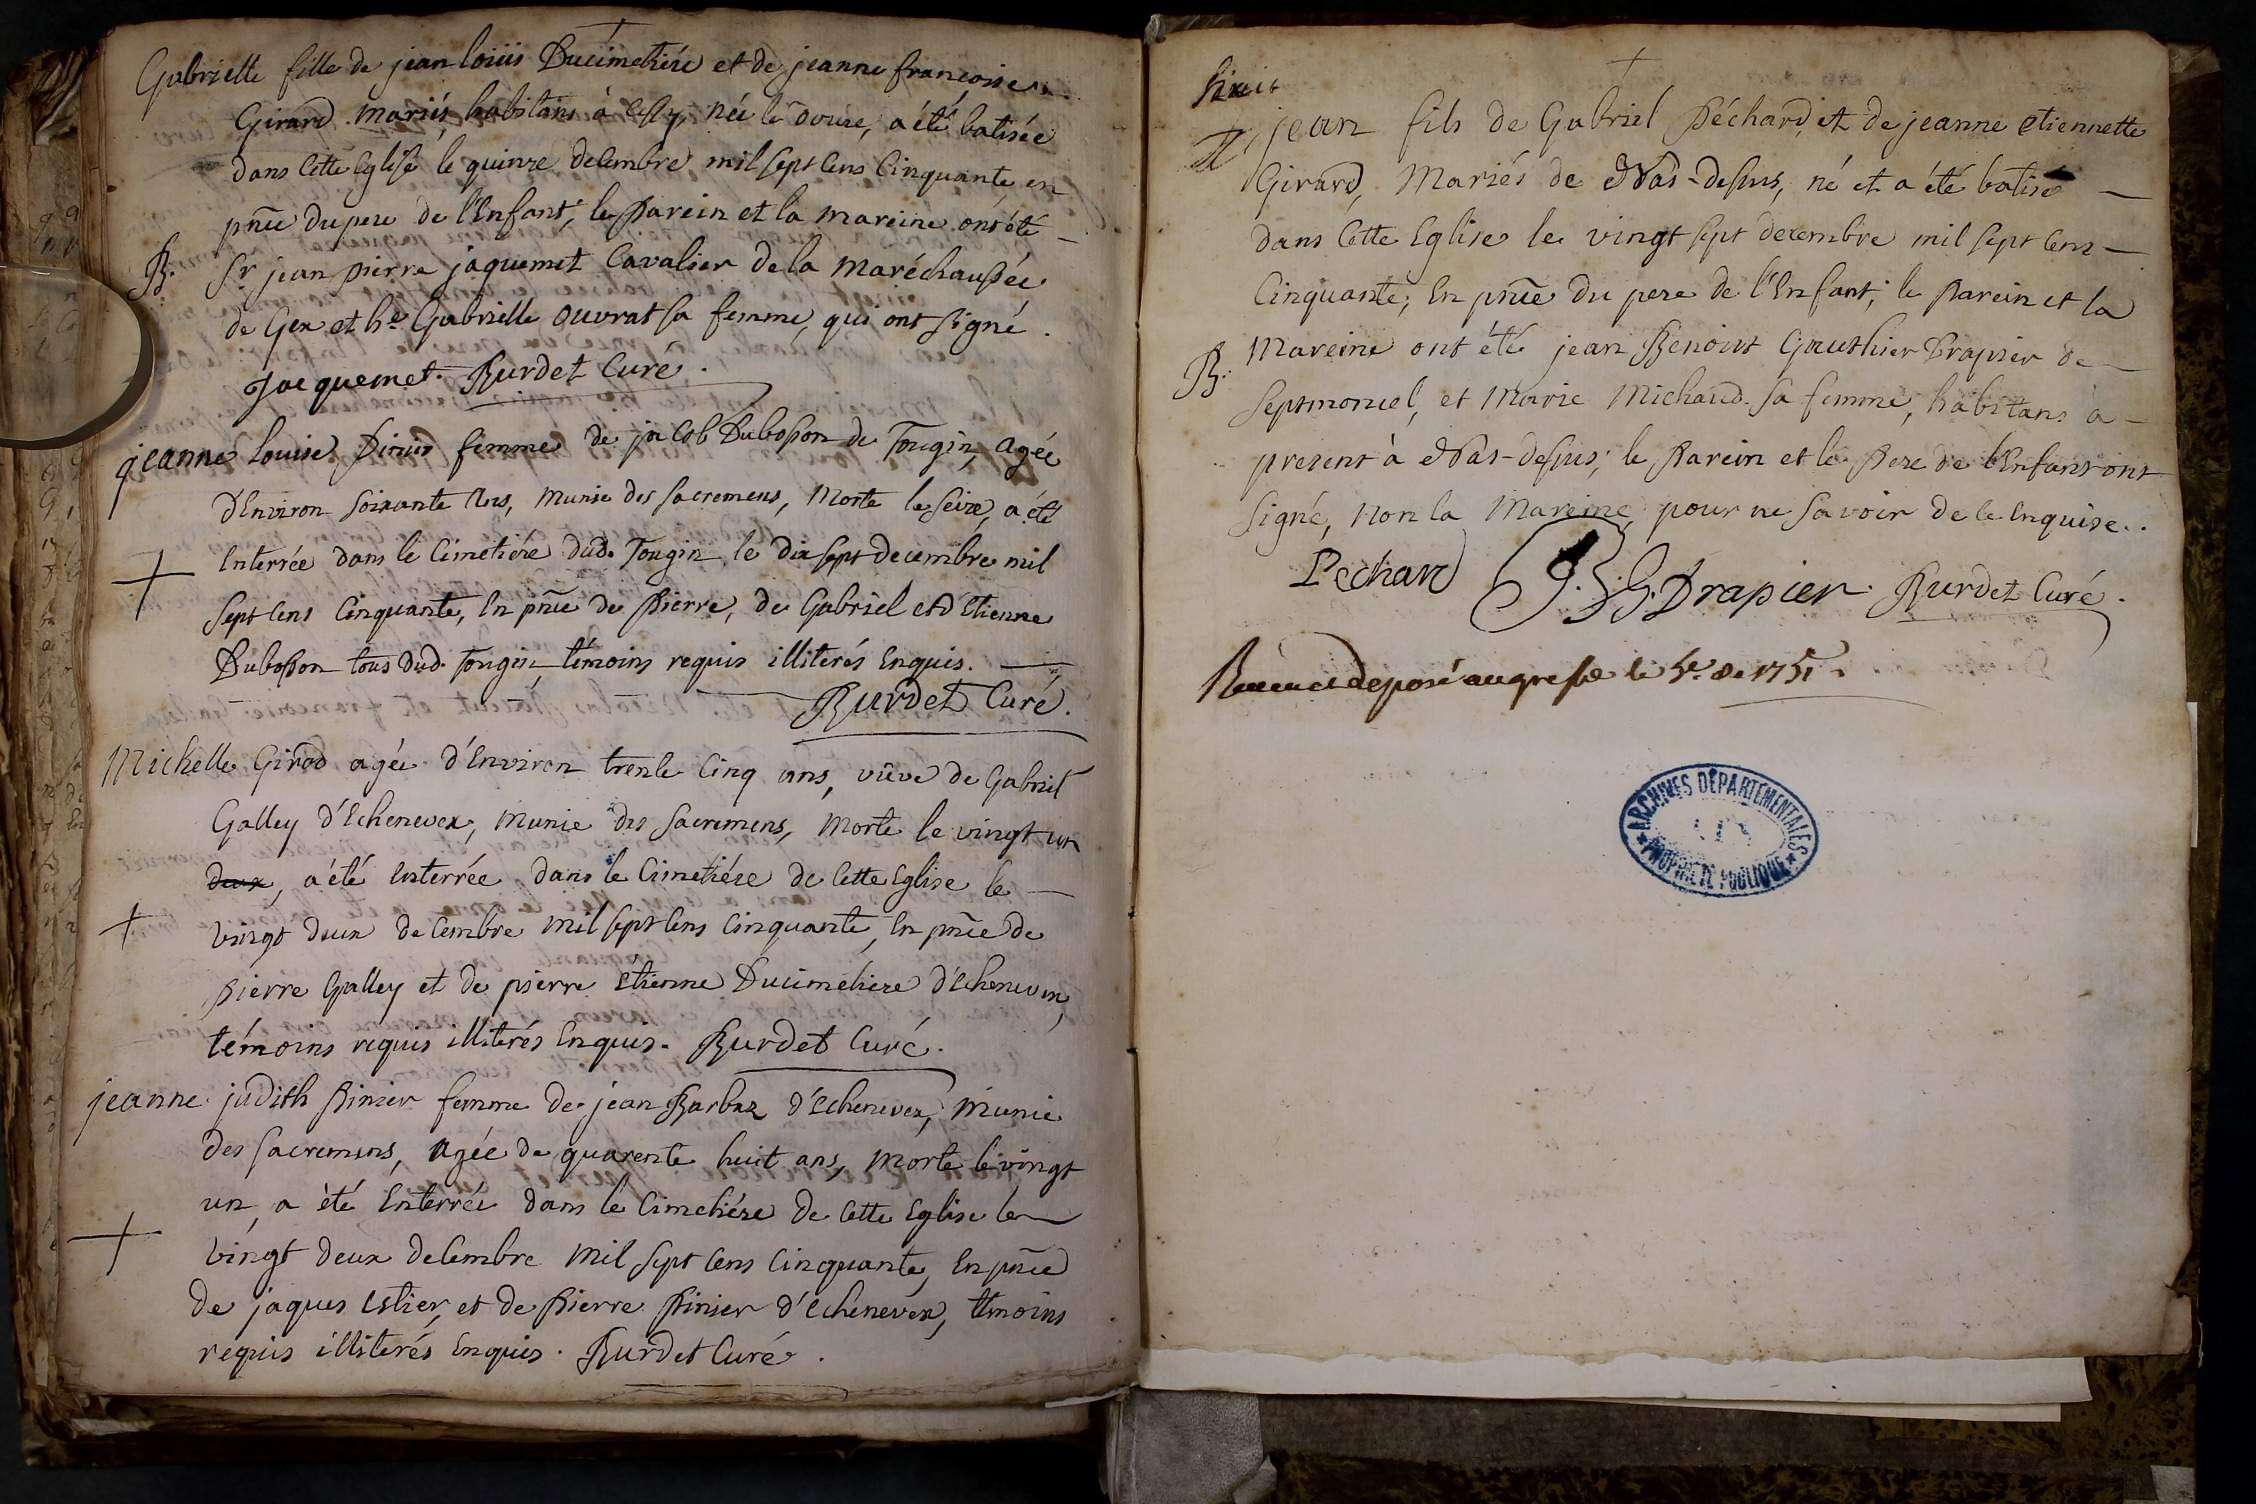 Gabrielle fille de jean loüis Ducimetiére et de jeanne francoise
Girard mariés habitans à Cessy, née le douze, a été batisée
dans Cette Eglise le quinze decembre mil sept Cens Cinquante en
pñce du pere de l'Enfant, le Parein et la mareine ont été
B. Sr jean pierre jaquemet Cavalier de la maréchaussée
de Gex et he Gabrielle ouvrat sa femme, qui ont signé.
Jacquemet. Burdet Curé.
jeanne Louise femme de jacob Dubosson de Tougin, agée
d'Environ soixante Ans, munie des sacremens, Morte le seize, a été
Enterrée dans le Cimetiére dud. Tougin le dix sept decembre mil
sept Cens Cinquante, En pñce de Pierre, de Gabriel et d'Etienne
Dubosson tous dud. Tougin, témoins requis illiterés Enquis.
Burdet Curé.
Michelle Girod agée d'Environ trente Cinq ans, vûve de Gabriel
Galley d'Echenevex, munie des sacremens, morte le vingt un
deux, a été enterrée dans le Cimetiére de Cette Eglise le
vingt deux decembre mil sept Cens Cinquante, En pñce de
pierre Galley et de pierre Etienne Ducimetiere d'Echenevex,
témoins requis illiterés Enquis. Burdet Curé.
jeanne judith Pinier femme de jean Barbaz d'Echenevex, munie
des sacremens, agée de quarente huit ans, morte le vingt
un, a été Enterrée dans le Cimetiére de Cette Eglise le
vingt deux decembre mil sept Cens Cinquante, En pñce
de jaques Estier, et de Pierre Pinier d'Echenevex, témoins
requis illiterés Enquis. Burdet Curé.
jean fils de Gabriel Péchard, et de jeanne etiennette
Girard, Mariés de -dessus, né et a été batisé
dans Cette Eglise le vingt sept decembre mil sept Cens
Cinquante; En pñce du pere de l'Enfant; le Parein et la
B. Mareine ont été jean Benoist Gauthier Drapier de
Septmoncel, et Marie Michaud sa femme, habitans à
present à -dessus; le Parein et le Pere de l'Enfant ont
signé, non la Mareine pour ne savoir de ce Enquise.
Pechard J. B. G. Drapier. Burdet Curé.
deposé au greffe le de 1751.
ARCHIVES DÉPARTEMENTALES
AIN
* PROPRIÉTÉ PUBLIQUE *